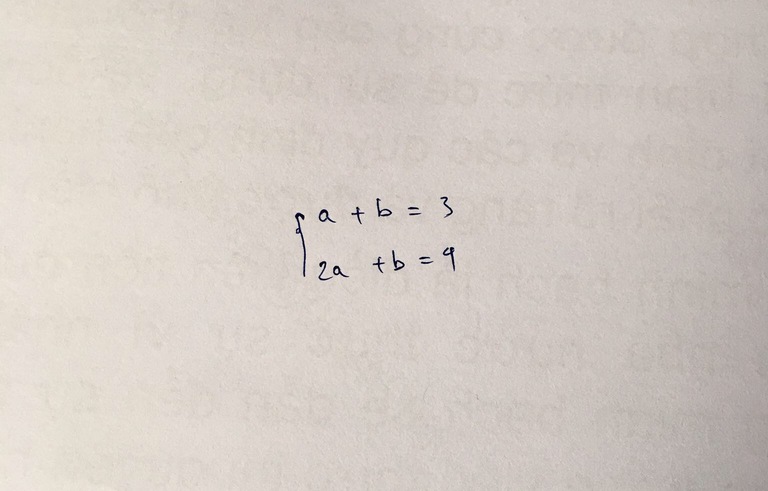 a + b = 3
2a + b = 9